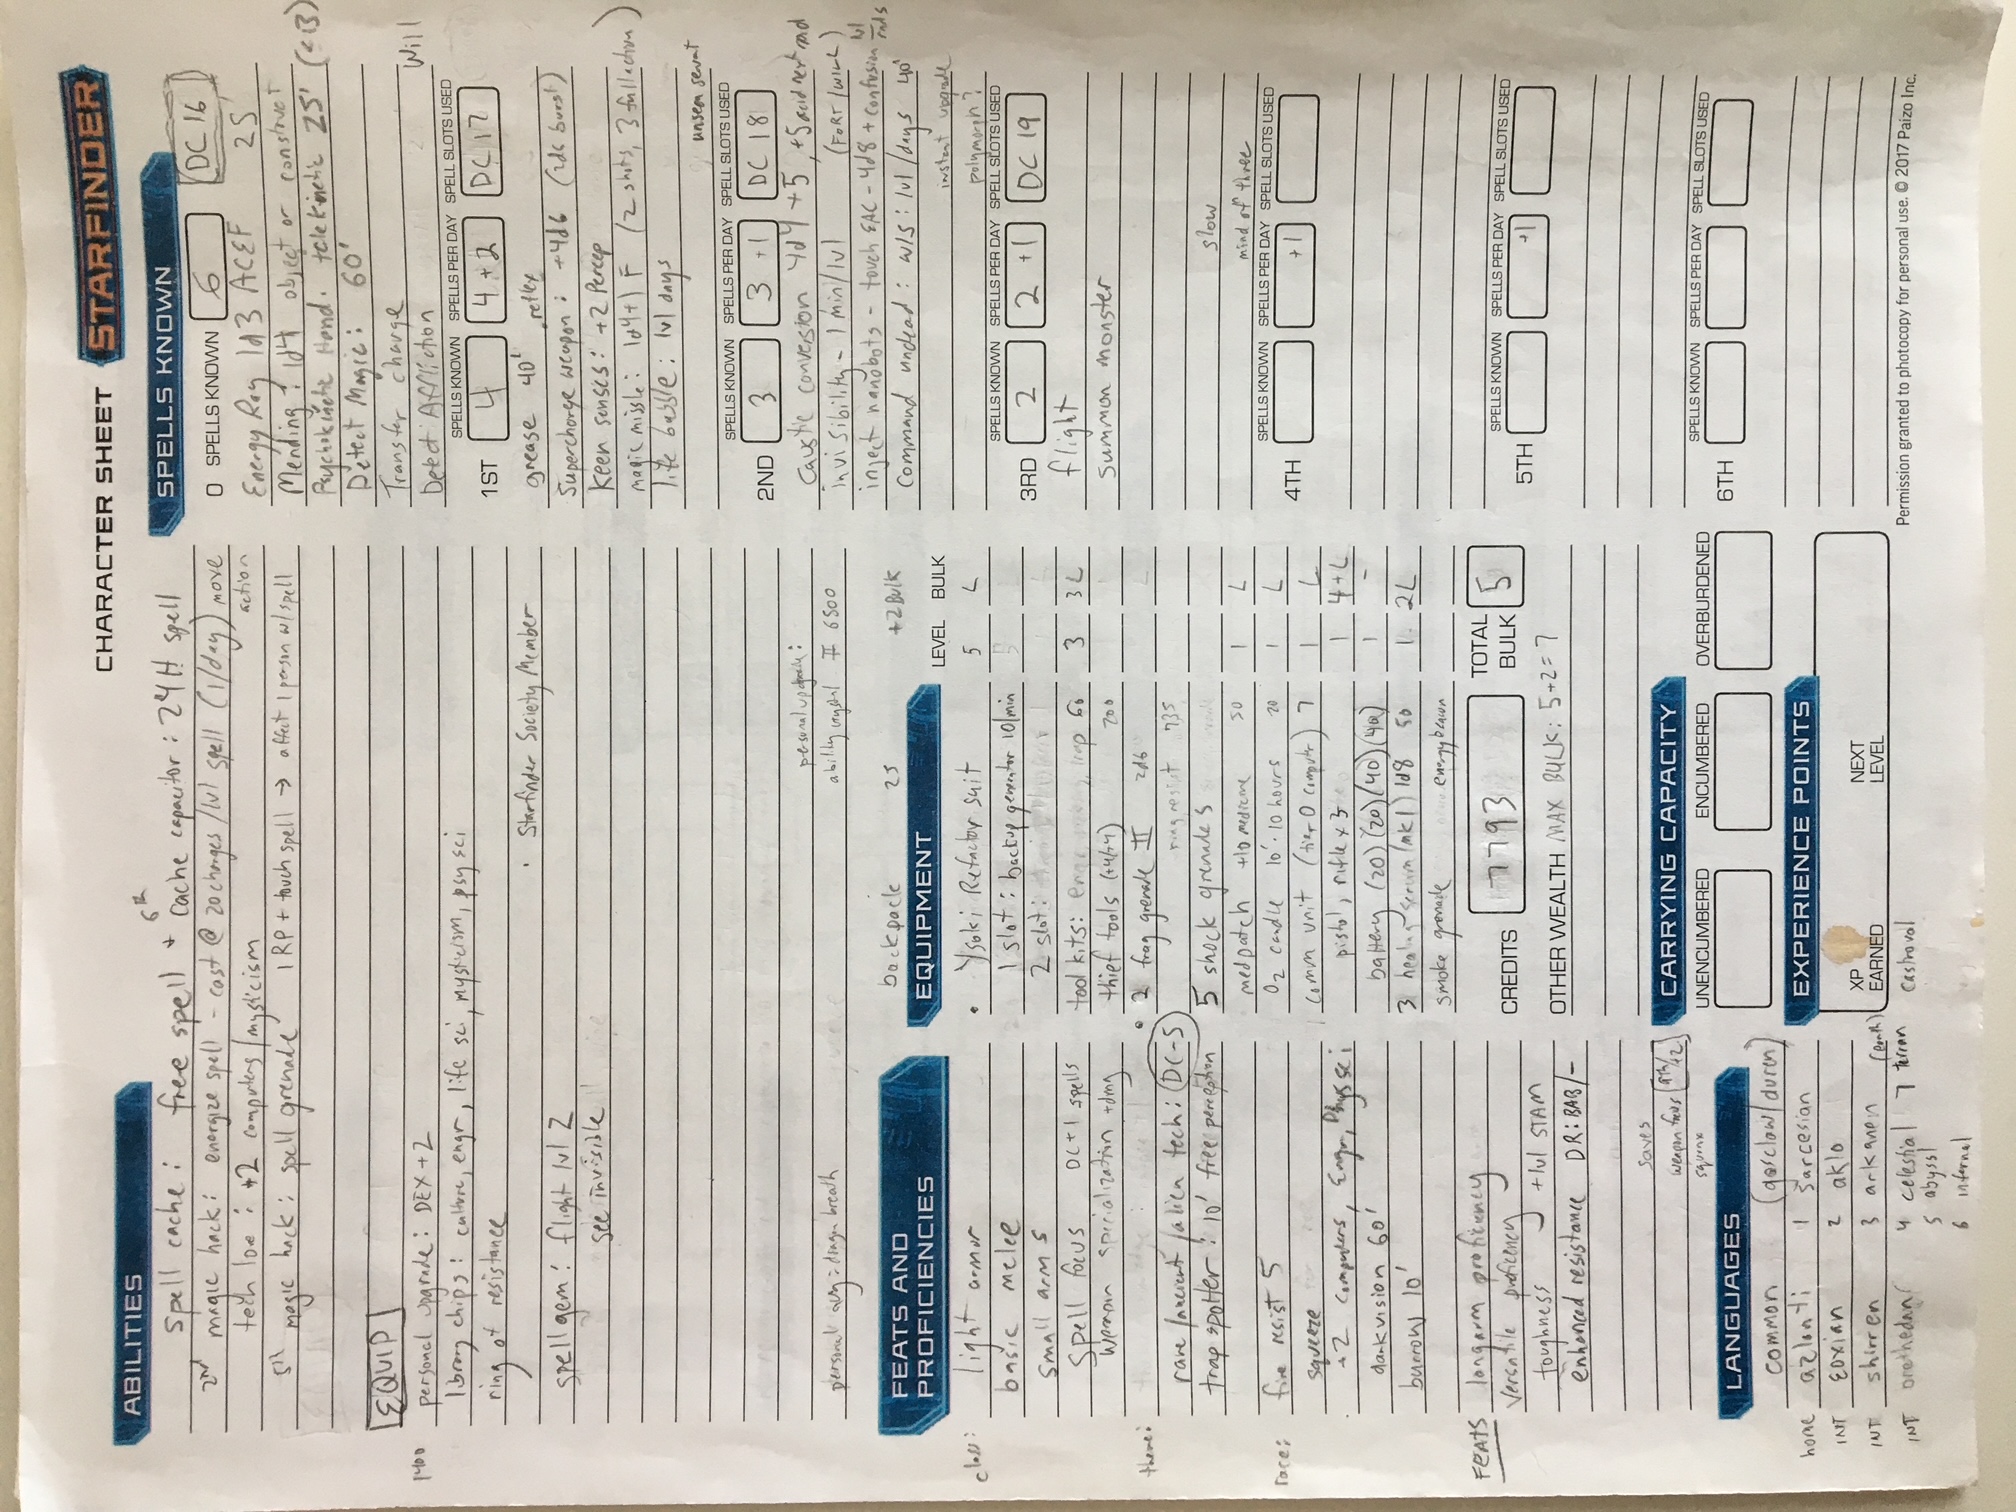 CHARACTER SHEET STARFINDER
ABILITIES
6th
spell cache: free spell + cache capacitor: 24H spell
2nd magic hack: energize spell - cost @ 20 charges/lvl spell (1/day) move action
tech lore: +2 computers/mysticism
5th magic hack: spell grenade 1 RP + touch spell → affect 1 person w/spell
EQUIP
1400 personal upgrade: DEX +2
library chips: culture, engr, life sci, mysticism, psy sci
ring of resistance
· Starfinder Society Member
spell gem: flight lvl 2
see invisible
personal upgrade:
personal aug: dragon breath
ability crystal II 6500
FEATS AND PROFICIENCIES
class: light armor
basic melee
small arms
spell focus DC+1 spells
weapon specialization +dmg
theme:
rare/ancient/alien tech: DC-5
trap spotter: 10' free perception
race: fire resist 5
squeeze
+2 computers, Engr, Phys sci
darkvision 60'
burrow 10'
FEATS longarm proficiency
versatile proficiency
toughness +lvl STAM
enhanced resistance DR: BAB/-
saves
weapon focus
LANGUAGES
common (gosclaw/duren)
home azlanti 1 sarcesian
INT eoxian 2 aklo
INT shirren 3 arkanen
INT orethedani 4 celestial 7 terran (earth)
5 abyssl
6 infernal
backpack 25 +2 Bulk
EQUIPMENT LEVEL BULK
• Ysoki Refactor suit 5 L
1 slot: backup generator 10/min
2 slot:
tool kits: trap 60 3 3L
thief tools (+4/+4) 200
• 2 frag grenade II 2d6
ring resist 735
5 shock grenades
medpatch +10 medicine 50 1 L
O2 candle 10' · 10 hours 20 1 L
comm unit (tier 0 computer) 7 1 L
pistol, rifle x3 1 4+L
battery (20) (20) (40) (40) 1 -
3 healing serum (mk1) 1d8 50 1 2L
smoke grenade energy beacon
CREDITS 7793 TOTAL BULK 5
OTHER WEALTH MAX BULK: 5+2=7
CARRYING CAPACITY
UNENCUMBERED ENCUMBERED OVERBURDENED
EXPERIENCE POINTS
XP EARNED NEXT LEVEL
castroval
SPELLS KNOWN
0 SPELLS KNOWN 6 DC 16
Energy Ray 1d3 ACEF 25'
Mending: 1d4 object or construct
Psychokinetic Hand. telekinetic 25'
Detect Magic: 60'
Transfer charge
Detect Affliction Will
SPELLS KNOWN SPELLS PER DAY SPELL SLOTS USED
1ST 4 4 +2 DC 17
grease 40' reflex
Supercharge weapon: +4d6 (2d6 burst)
keen senses: +2 Percep
magic missle: 1d4+1 F (2 shots, 3 full action)
life bubble: lvl days
unseen servat
SPELLS KNOWN SPELLS PER DAY SPELL SLOTS USED
2ND 3 3 +1 DC 18
Caustic conversion 4d4 +5, +5 acid next rnd
invisibility - 1 min/lvl (FORT/WILL)
inject nanobots - touch EAC - 4d8 + confusion lvl rnds
Command undead: w/s: lvl/days 40'
instant upgrade
polymorph?
SPELLS KNOWN SPELLS PER DAY SPELL SLOTS USED
3RD 2 2 +1 DC 19
flight
summon monster
slow
mind of three
SPELLS KNOWN SPELLS PER DAY SPELL SLOTS USED
4TH +1
SPELLS KNOWN SPELLS PER DAY SPELL SLOTS USED
5TH +1
SPELLS KNOWN SPELLS PER DAY SPELL SLOTS USED
6TH
Permission granted to photocopy for personal use. © 2017 Paizo Inc.